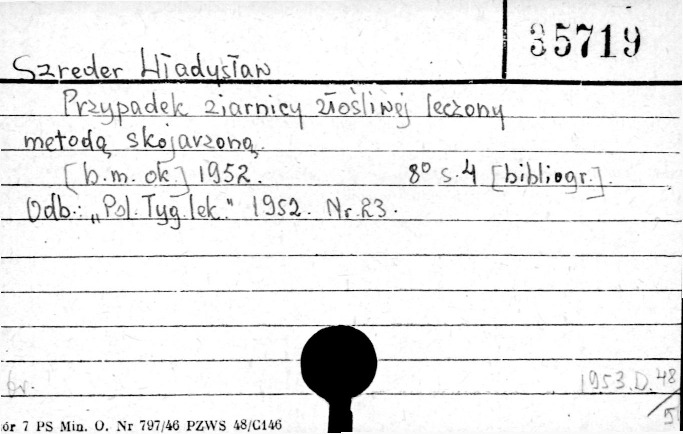 35719
Szreder Władysław
Przypadek ziarnicy złośliwej leczony
metodą skojarzoną.
[b.m. ok.] 1952. 8° s. 4 [bibliogr.].
Odb.: „Pol. Tyg. lek." 1952. Nr. 23.
br.
1953.D.48/5
ór 7 PS Min. O. Nr 797/46 PZWS 48/G146